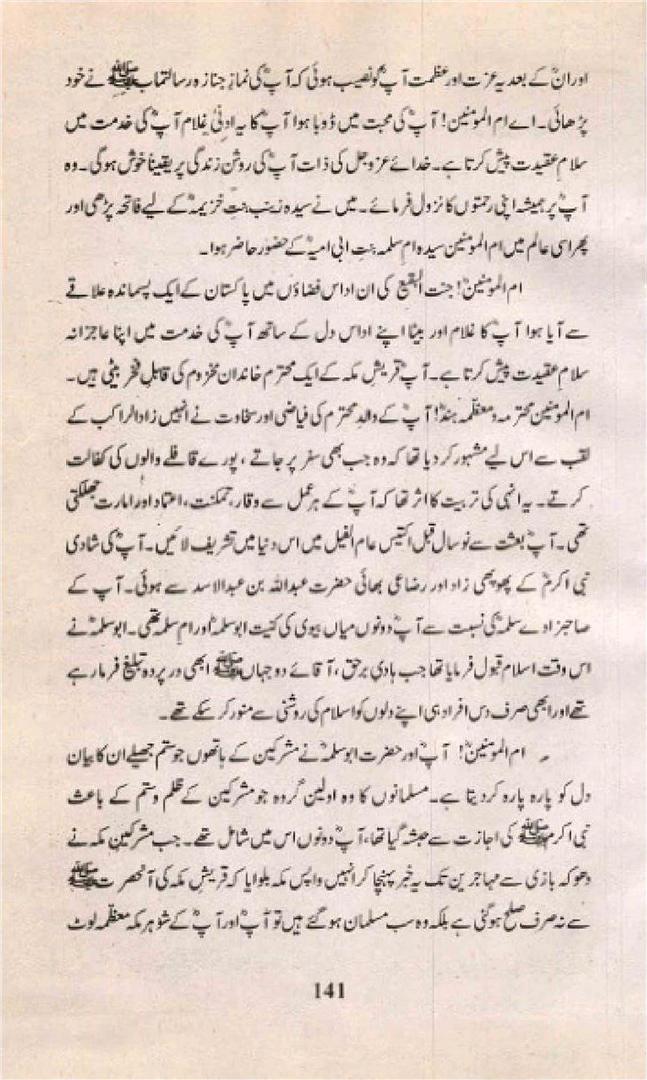 اور انؓ کے بعد یہ عزت اور عظمت آپؓ کو نصیب ہوئی کہ آپؓ کی نمازِ جنازہ رسالتمابﷺ نے خود
پڑھائی۔ اے ام المومنین! آپؓ کی محبت میں ڈوبا ہوا آپؓ کا یہ ادنیٰ غلام آپؓ کی خدمت میں
سلامِ عقیدت پیش کرتا ہے۔ خدائے عزوجل کی ذات آپؓ کی روشن زندگی پر یقیناً خوش ہوگی۔ وہ
آپؓ پر ہمیشہ اپنی رحمتوں کا نزول فرمائے۔ میں نے سیدہ زینب بنتِ خزیمہؓ کے لیے فاتحہ پڑھی اور
پھر اسی عالم میں ام المومنین سیدہ امِ سلمہ بنتِ ابی امیہؓ کے حضور حاضر ہوا۔
ام المومنینؓ! جنت البقیع کی ان اداس فضاؤں میں پاکستان کے ایک پسماندہ علاقے
سے آیا ہوا آپؓ کا غلام اور بیٹا اپنے اداس دل کے ساتھ آپؓ کی خدمت میں اپنا عاجزانہ
سلامِ عقیدت پیش کرتا ہے۔ آپؓ قریشِ مکہ کے ایک محترم خاندان مخزوم کی قابلِ فخر بیٹی ہیں۔
ام المومنین محترمہ و معظمہ ہندؓ! آپؓ کے والدِ محترم کی فیاضی اور سخاوت نے انہیں زاد الراکب کے
لقب سے اس لیے مشہور کردیا تھا کہ وہ جب بھی سفر پر جاتے، پورے قافلے والوں کی کفالت
کرتے۔ یہ انہی کی تربیت کا اثر تھا کہ آپؓ کے ہر عمل سے وقار، تمکنت، اعتماد اور امارت جھلکتی
تھی۔ آپؓ بعثت سے نو سال قبل اکتیس عام الفیل میں اس دنیا میں تشریف لائیں۔ آپؓ کی شادی
نبی اکرمؐ کے پھوپھی زاد اور رضاعی بھائی حضرت عبداللہ بن عبدالاسد سے ہوئی۔ آپ کے
صاحبزادے سلمہؓ کی نسبت سے آپؓ دونوں میاں بیوی کی کنیت ابو سلمہؓ اور ام سلمہؓ تھی۔ ابو سلمہؓ نے
اس وقت اسلام قبول فرمایا تھا جب ہادیِ برحق، آقائے دو جہاںﷺ ابھی در پردہ تبلیغ فرما رہے
تھے اور ابھی صرف دس افراد ہی اپنے دلوں کو اسلام کی روشنی سے منور کرسکے تھے۔
ام المومنینؓ! آپؓ اور حضرت ابو سلمہؓ نے مشرکین کے ہاتھوں جو ستم جھیلے ان کا بیان
دل کو پارہ پارہ کردیتا ہے۔ مسلمانوں کا وہ اولین گروہ جو مشرکین کے ظلم و ستم کے باعث
نبی اکرمﷺ کی اجازت سے حبشہ گیا تھا، آپؓ دونوں اس میں شامل تھے۔ جب مشرکینِ مکہ نے
دھوکہ بازی سے مہاجرین تک یہ خبر پہنچا کر انہیں واپس مکہ بلوایا کہ قریشِ مکہ کی آنحضرتﷺ
سے نہ صرف صلح ہوگئی ہے بلکہ وہ سب مسلمان ہوگئے ہیں تو آپؓ اور آپؓ کے شوہر مکہ معظمہ لوٹ
141